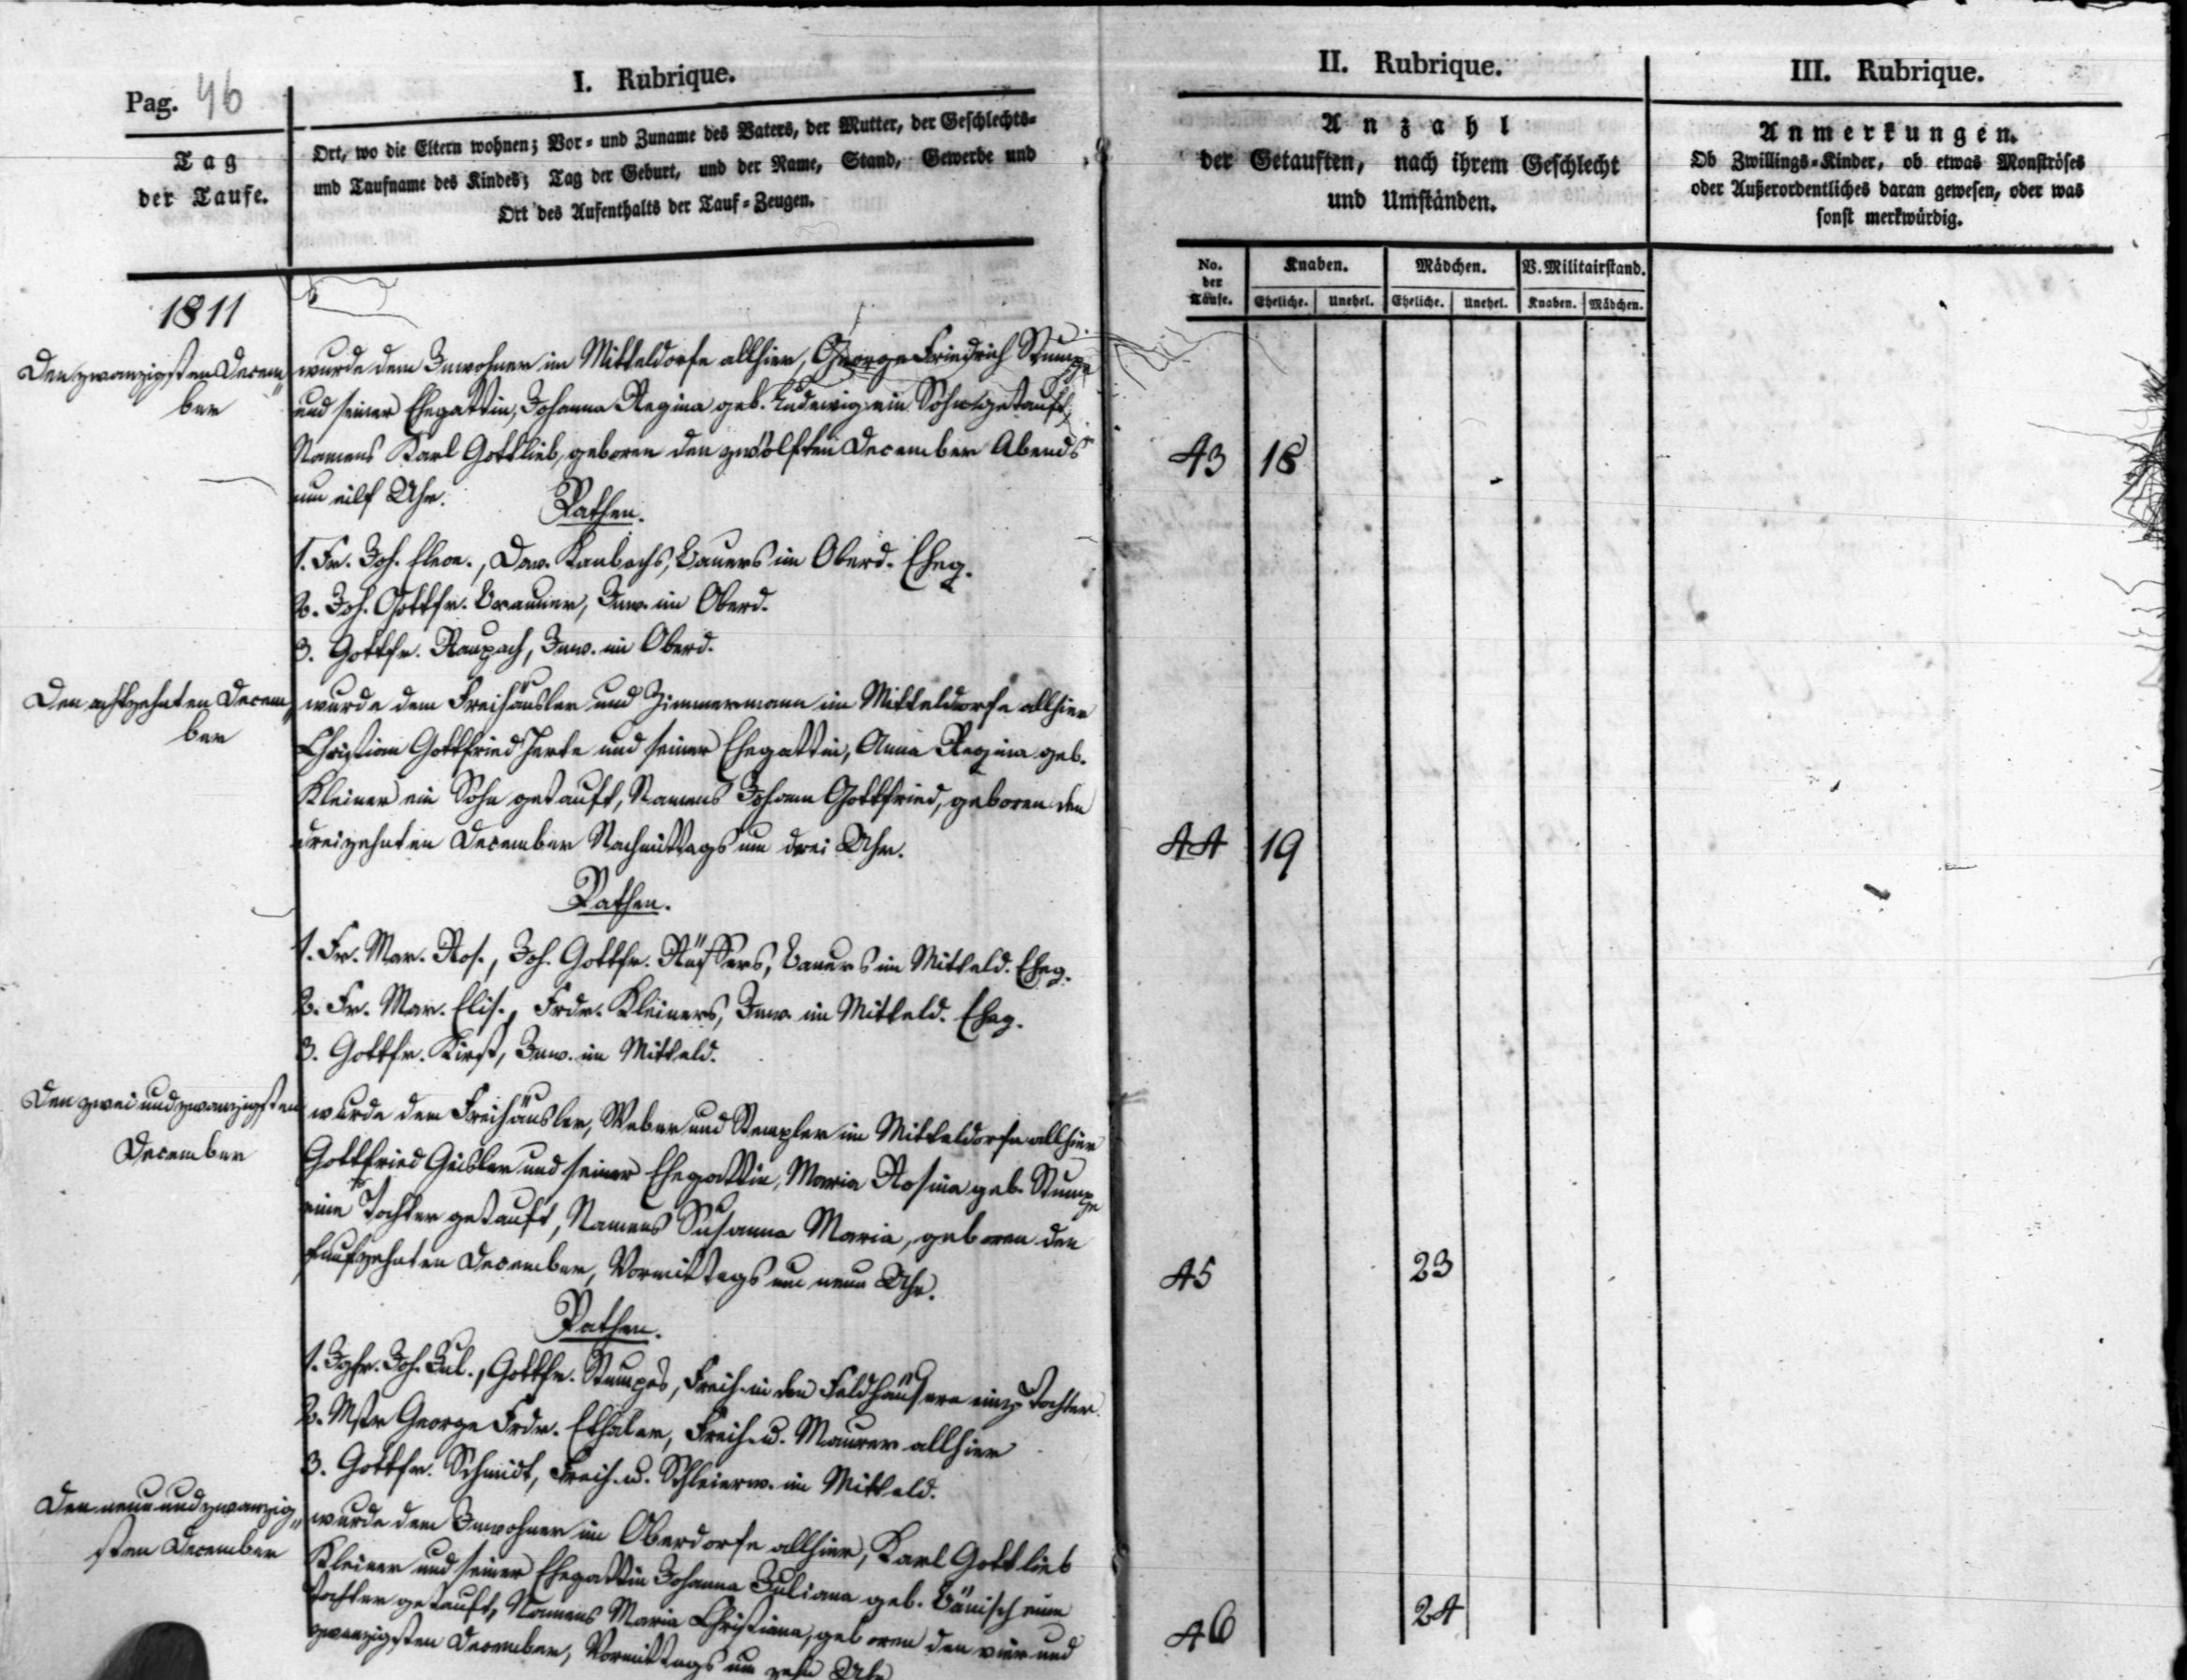 Pag. 46
I. Rubrique.
Tag
der Taufe.
Ort, wo die Eltern wohnen; Vor- und Zuname des Vaters, der Mutter, der Geschlechts-
und Taufname des Kindes; Tag der Geburt, und der Name, Stand, Gewerbe und
Ort des Aufenthalts der Tauf-Zeugen.
II. Rubrique.
Anzahl
der Getauften, nach ihrem Geschlecht
und Umständen.
III. Rubrique.
Anmerkungen.
Ob Zwillings-Kinder, ob etwas Monströses
oder Außerordentliches daran gewesen, oder was
sonst merkwürdig.
No.
der
Taufe.
Knaben.
Mädchen.
V. Militairstand.
Eheliche. Unehel. Eheliche. Unehel. Knaben. Mädchen.
1811
Den zwanzigsten Decem
ber
wurde dem Inwohner im Mitteldorfe allhier, George Friedrich Stumpe
und seiner Ehegattin, Johanna Regina geb. Ludewig ein Sohn getauft,
Namens Karl Gottlieb, geboren den zwölften December Abends
um eilf Uhr.
43 18
Pathen.
1. Fr. Joh. Eleon., Dav. Kambachs, Bauers im Oberd. Eheg.
2. Joh. Gottfr. Brauner, Inw. im Oberd.
3. Gottfr. Raupach, Inw. im Oberd.
Den achtzehnten Decem
ber
wurde dem Freihäusler und Zimmermann im Mitteldorfe allhier
Christian Gottfried Herte und seiner Ehegattin, Anna Regina geb.
Kleiner ein Sohn getauft, Namens Johann Gottfried, geboren den
dreizehnten December Nachmittags um drei Uhr.
44 19
Pathen.
1. Fr. Mar. Ros., Joh. Gottfr. Rüffers, Bauers im Mitteld. Eheg.
2. Fr. Mar. Elis., Frdr. Kleiners, Inw. im Mitteld. Eheg.
3. Gottfr. Kirst, Inw. im Mitteld.
Den zwei und zwanzigsten
December
wurde dem Freihäusler, Weber und Stempler im Mitteldorfe allhier
Gottfried Geisler und seiner Ehegattin, Maria Rosina geb. Stumpe
eine Tochter getauft, Namens Susanna Maria, geboren den
funfzehnten December, Vormittags um neun Uhr.
45 23
Pathen.
1. Jgfr. Joh. Jul., Gottfr. Stumpes, Freih. in den Feldhäusern einz. Tochter.
2. Mstr George Frdr. Ethaler, Freih. u. Maurer allhier
3. Gottfr. Schmidt, Freih. u. Schleierw. im Mitteld.
Den neun und zwanzig
sten December
wurde dem Inwohner im Oberdorfe allhier, Karl Gottlieb
Kleiner und seiner Ehegattin Johanna Juliana geb. Bänisch eine
Tochter getauft, Namens Maria Christiana, geboren den vier und
zwanzigsten December, Vormittags um zehn Uhr
46 24